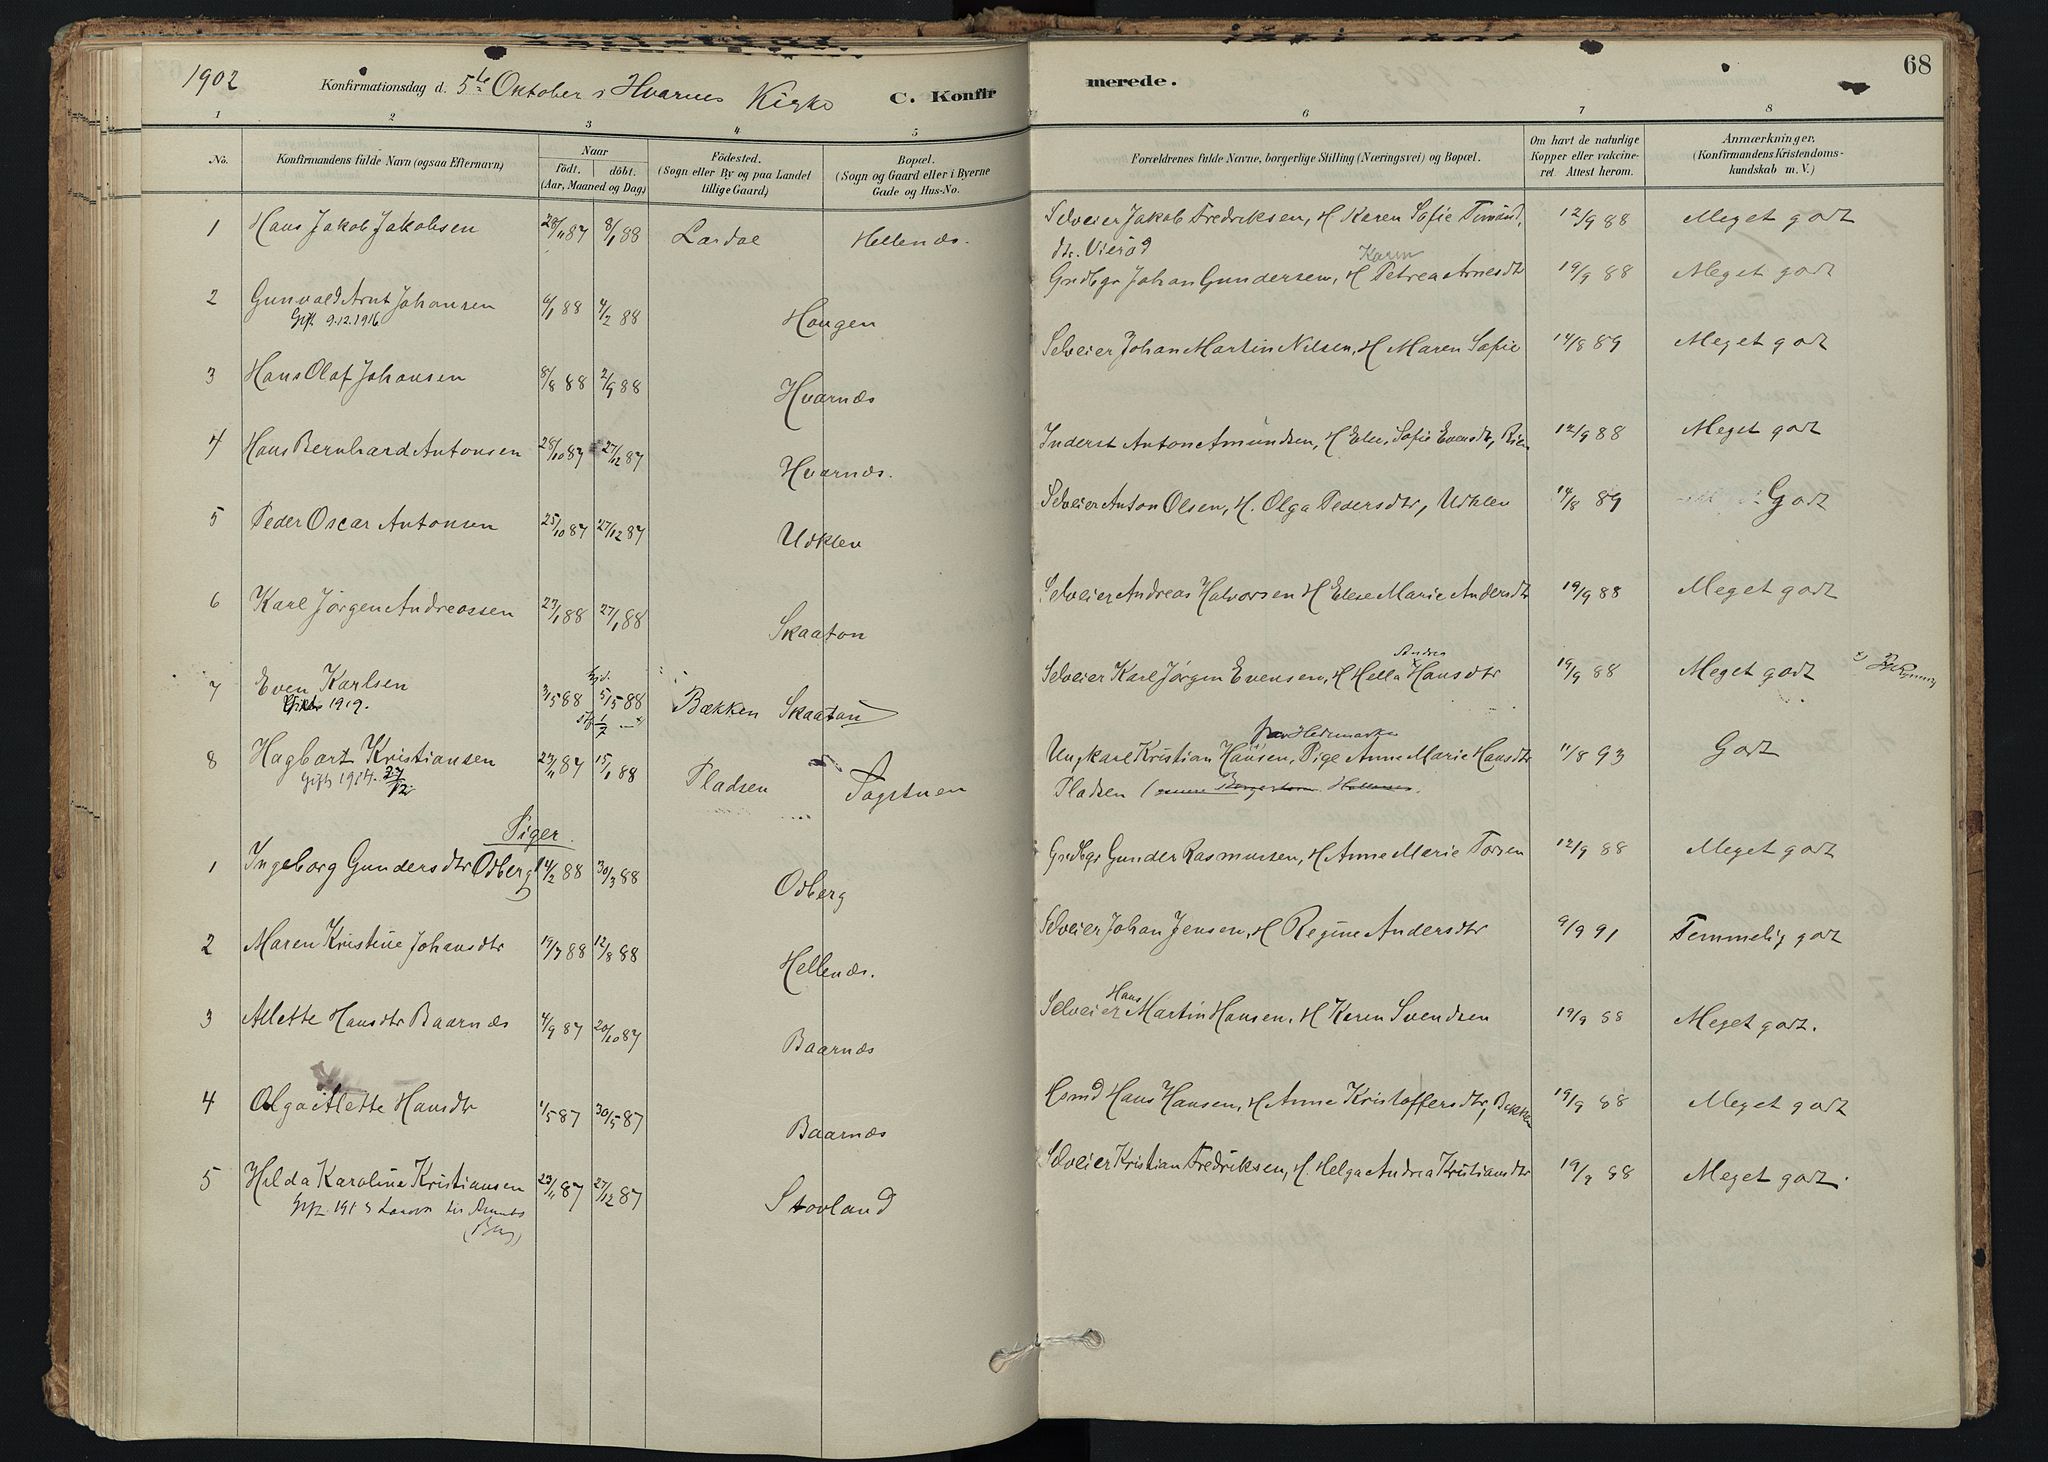 1902 Konfirmationsdag d. 5te Oktober i Hvarnes Kirke C. Konfirmerede. 68
1 2 3 4 5 6 7 8
No. Konfirmandens fulde Navn (ogsaa Efternavn) Naar födt. döbt. (Aar, Maaned og Dag) Födested. (Sogn eller By og paa Landet tillige Gaard) Bopæl. (Sogn og Gaard eller i Byerne Gade og Hus-No. Forældrenes fulde Navne, borgerlige Stilling (Næringsvei) og Bopæl. Om havt de naturlige Kopper eller vakcineret. Attest herom. Anmærkninger. (Konfirmandens Kristendomskundskab m. V.)
1 Hans Jakob Jakobsen 28/11 87 8/1 88 Lardal Hellenæs. Selveier Jakob Fredriksen, H Karen Sofie 12/9 88 Meget godt
dtr. Vierød
2 Gunvald Arnt Johansen 6/1 88 4/2 88 Haugen Grdbgr Johan Gundersen, H Karen Petrea Arnesdtr 19/9 88 Meget godt
Gift 9.12.1916
3 Hans Olaf Johansen 8/8 88 2/9 88 Hvarnæs Selveier Johan Martin Nilsen, H Maren Sofie 14/8 89 Meget godt
4 Hans Bernhard Antonsen 28/10 87 27/12 87 Hvarnæs. Inderst Anton Amundsen, H Else Sofie Evensdtr, 12/9 88 Meget godt
5 Peder Oscar Antonsen 25/10 87 27/12 87 Udklev Selveier Anton Olsen, H. Olga Pedersdtr, Udklev 14/8 89 Godt
6 Karl Jørgen Andreassen 23/1 88 27/1 88 Skaaton Selveier Andreas Halvorsen H Else Marie Andersdtr 19/9 88 Meget godt
7 Even Karlsen 3/5 88 5/5 88 Bækken Skaaton Selveier Karl Jørgen Evensen, H Hella Andrea Hansdtr 19/9 88 Meget godt
Gift 1919.
8 Hagbart Kristiansen 23/11 87 15/1 88 Pladsen Sagstuen Ungkarl Kristian Hansen, Pige Anne Marie Hansdtr 11/8 93 Godt
Gift 1914. 27/12 Pladsen
Piger
1 Ingeborg Gundersdtr Odberg 14/2 88 30/3 88 Odberg Grdbgr Gunder Rasmussen, H Anne Marie Torsen 12/9 88 Meget godt
2 Maren Kristine Johansdtr 19/7 88 12/8 88 Hellenæs. Selveier Johan Jensen, H Regine Andersdtr 9/9 91 Temmelig godt
3 Alette Hansdtr Baarnæs 4/9 87 20/10 87 Baarnæs Selveier Hans Martin Hansen, H Karen Svendsen 19/9 88 Meget godt.
4 Olga Alette Hansdtr 1/5 87 30/5 87 Baarnæs Hsmd Hans Hansen, H Anne Kristoffersdtr, 19/9 88 Meget godt
5 Hilda Karoline Kristiansen 23/11 87 27/12 87 Stovland Selveier Kristian Fredriksen, H. Helga Andrea Kristiansdtr 19/9 88 Meget godt.